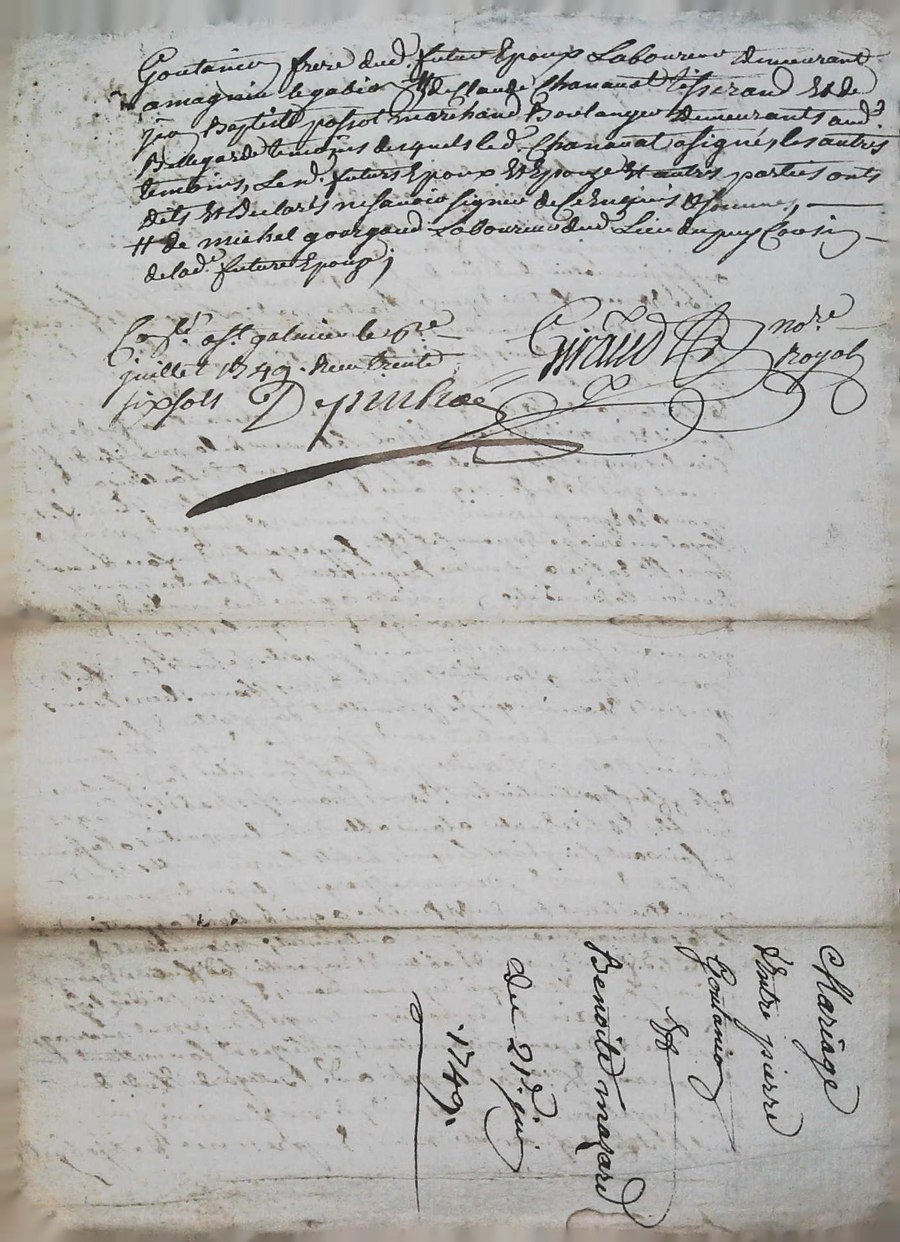 Goutanier frere dud. futur Epoux Laboureur demeurant
a magnieu le gabion # de Claude Chanavat tisserand Et de
jean Baptiste passot marchand Boulanger demeurants aud.
Bellegarde temoins desquels led. Chanavat a signé, les autres
temoins, Lesd. futurs Epoux Et Epouze Et autres parties onts
dits Et declarés ne savoir signer de ce Enquis & sommes,
# de michel gourgaud Laboureur dud. Lieu du puy Cousin
de lad.e future Epouze;
Con.lé a st galmier le 6re
juillet 1749. Receu trente
six sols Depinhac
Giraud nore.
royal
Mariage
D'entre pierre
Goutanier
Et
Benoite mazard
du 21e. juin
1749.